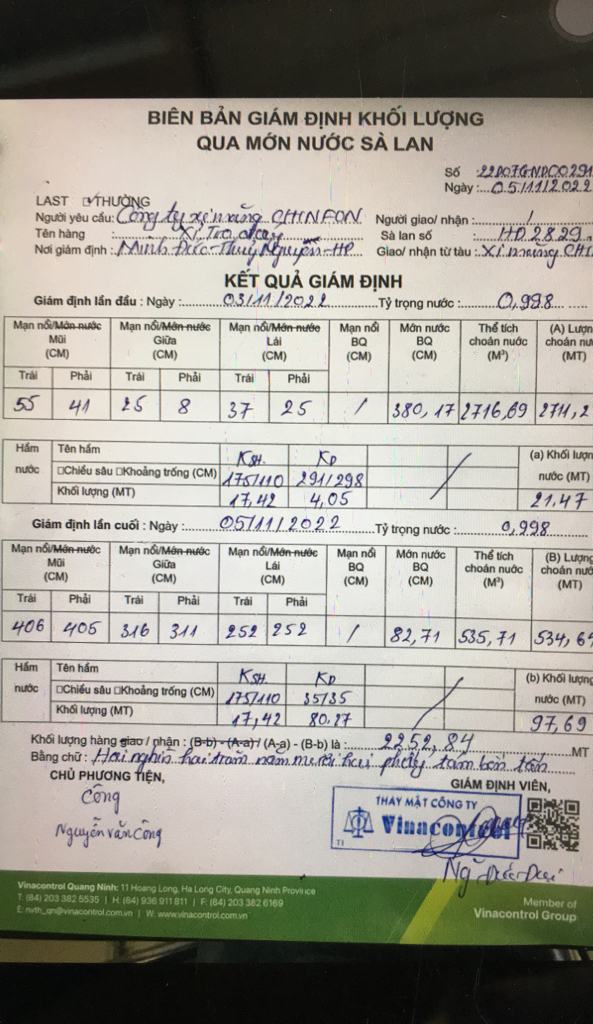 BIÊN BẢN GIÁM ĐỊNH KHỐI LƯỢNG
QUA MỚN NƯỚC SÀ LAN
Số : 22D07GNDC00291
Ngày :...05/11/2022
LAST ☑THƯỜNG
Người yêu cầu: Công ty xi măng CHINFON Người giao/ nhận : /
Tên hàng : Xỉ, Tro đáy Sà lan số : HD 2829
Nơi giám định : Minh Đức-Thuỷ Nguyên-HP Giao/ nhận từ tàu : Xi măng CHI
KẾT QUẢ GIÁM ĐỊNH
Giám định lần đầu : Ngày : 03/11/2022 Tỷ trọng nước : 0,998
Mạn nổi/Mớn nước Mũi (CM) Mạn nổi/Mớn nước Giữa (CM) Mạn nổi/Mớn nước Lái (CM) Mạn nổi BQ (CM) Mớn nước BQ (CM) Thể tích choán nước (M³) (A) Lượn choán nướ (MT)
Trái Phải Trái Phải Trái Phải
55 41 25 8 37 25 / 380,17 2716,69 2711,2
Hầm nước Tên hầm KSH. KD (a) Khối lượng nước (MT)
☐Chiều sâu ☐Khoảng trống (CM) 175/110 291/298
Khối lượng (MT) 17,42 4,05 21,47
Giám định lần cuối : Ngày : 05/11/2022 Tỷ trọng nước : 0,998
Mạn nổi/Mớn nước Mũi (CM) Mạn nổi/Mớn nước Giữa (CM) Mạn nổi/Mớn nước Lái (CM) Mạn nổi BQ (CM) Mớn nước BQ (CM) Thể tích choán nước (M³) (B) Lượng choán nướ (MT)
Trái Phải Trái Phải Trái Phải
406 405 316 311 252 252 / 82,71 535,71 534,64
Hầm nước Tên hầm KSH. KD (b) Khối lượng nước (MT)
☐Chiều sâu ☐Khoảng trống (CM) 175/110 35/35
Khối lượng (MT) 17,42 80,27 97,69
Khối lượng hàng giao / nhận : (B-b) - (A-a) / (A-a) - (B-b) là : 2252,84 MT
Bằng chữ : Hai nghìn hai trăm năm mươi hai phẩy tám bốn tấn
CHỦ PHƯƠNG TIỆN, GIÁM ĐỊNH VIÊN,
Công
Nguyễn văn Công
THAY MẶT CÔNG TY
Vinacontrol
T1
Vinacontrol Quang Ninh: 11 Hoang Long, Ha Long City, Quang Ninh Province
T: (84) 203 382 5535 | H: (84) 936 911 811 | F: (84) 203 382 6169
E: nvth_qn@vinacontrol.com.vn | W: www.vinacontrol.com.vn
Member of
Vinacontrol Group